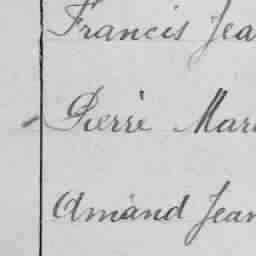 Francis Jea
Pierre Mar
Amand Jean